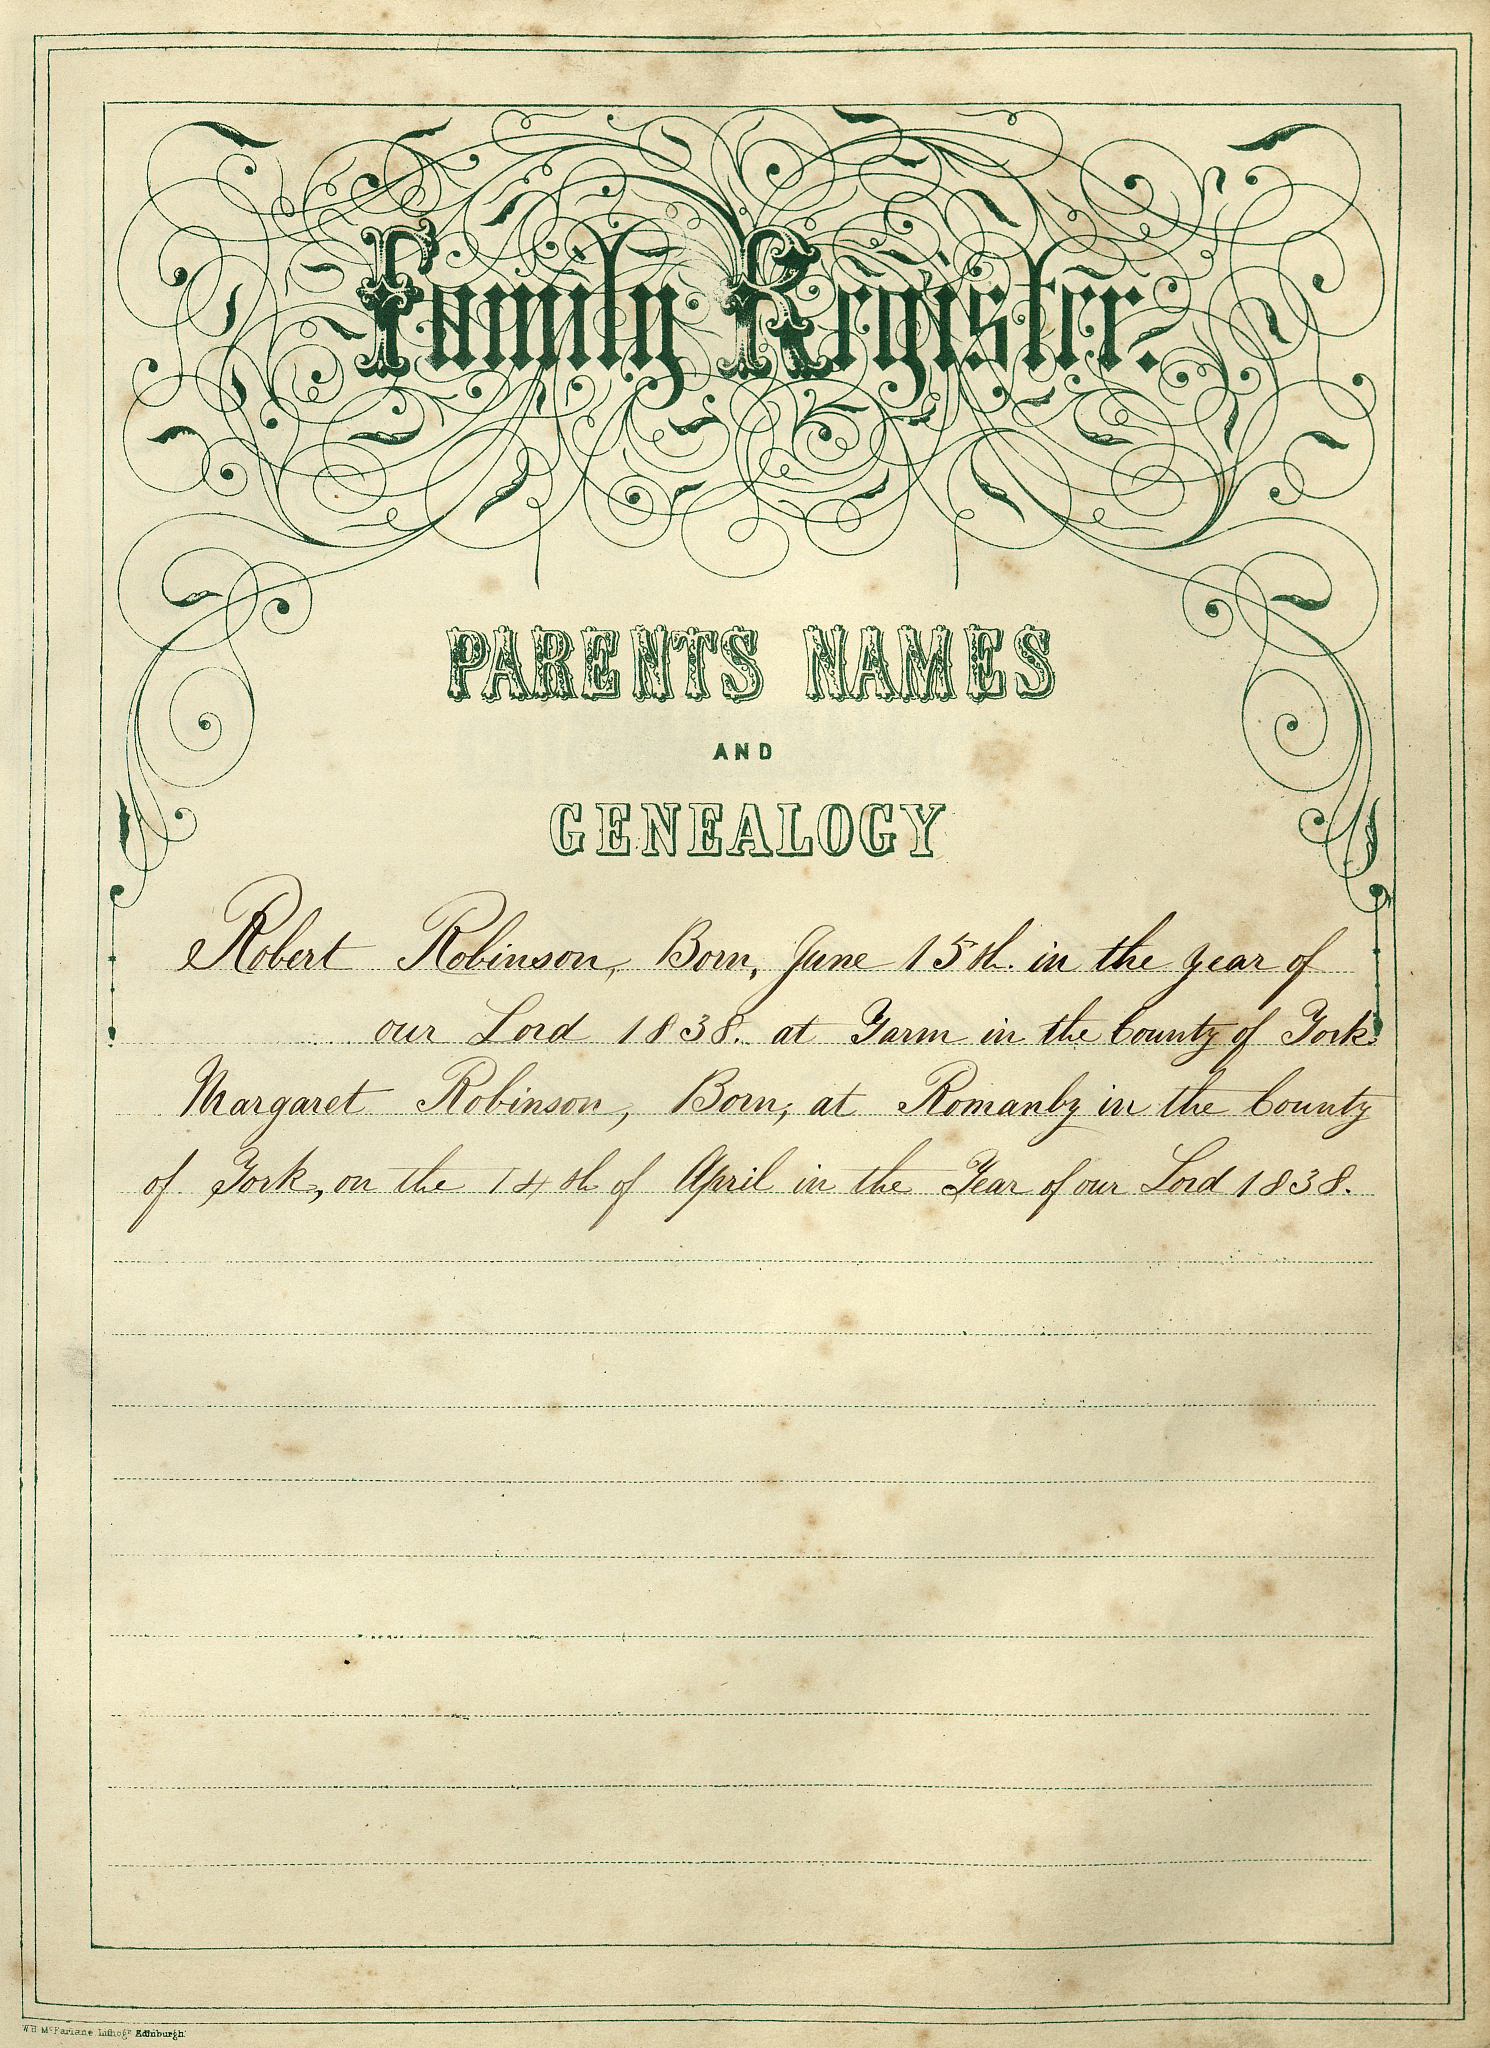 Family Register.
PARENTS NAMES
AND
GENEALOGY
Robert Robinson, Born, June 15th. in the year of
our Lord 1838. at Yarm in the County of York.
Margaret Robinson, Born, at Romanby in the County
of York, on the 14th of April in the Year of our Lord 1838.
W H McFarlane Lithogr Edinburgh